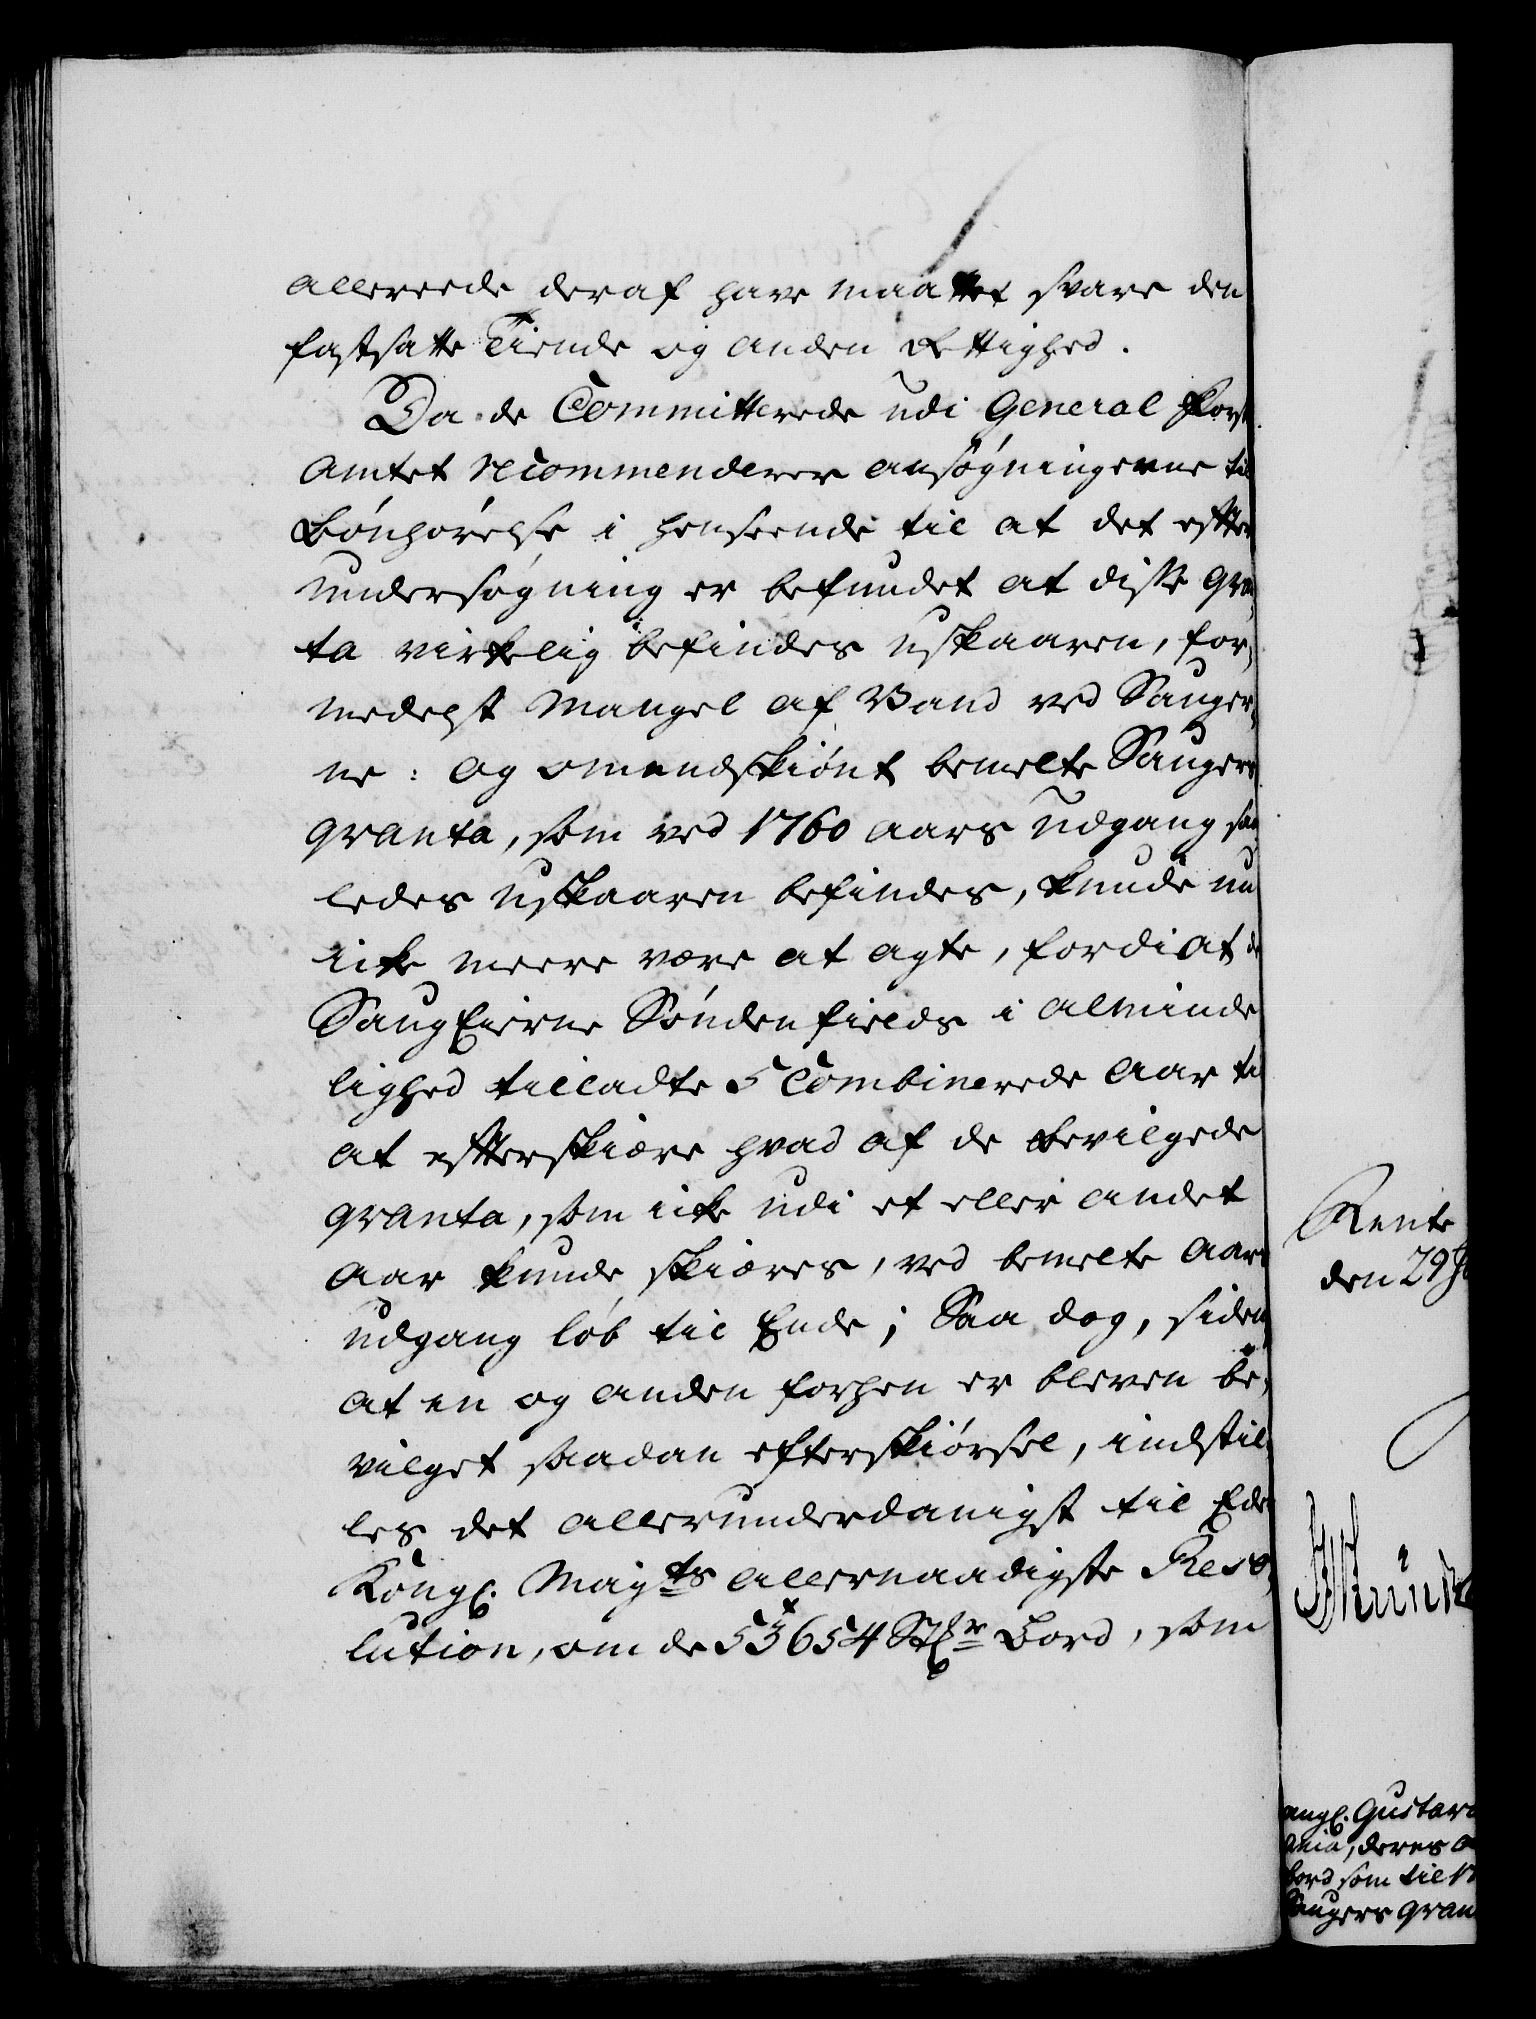 allereede deraf have maattet svare den
fastsatte Tiende og anden Rettighed.
Da de Committerede udi General Forst
Amtet recommenderer ansøgningerne til
Bønhørelse i henseende til at det efter
undersøgning er befundet at disse gran„
ta virkelig befindes uskaaren, for„
medelst Mangel af Vand ved Sauger„
ne: og omendskiønt bemelte Saugers
granta, som ved 1760 aars udgang saa„
ledes uskaaren befindes, kunde nu
icke meere være at agte, fordi at de
SaugEierne Søndenfields i alminde
lighed tilladte 5 Combinerede Aar til
at efterskiære hvad af de bevilgede
granta, som icke udi et eller andet
Aar kunde skiæres, ved bemelte Aars
udgang løb til Ende; Saa dog, siden
at en og anden forhen er bleven be„
vilget saadan efterskiørsel, indstil„
les det allerunderdanigst til Eders
Kongl. Mayts allernaadigste Reso„
lution, om de 53654 Stkr Bord, som
Rente
den 29
angl. Gustav
ania, deres
bord som til 17
Saugers gran